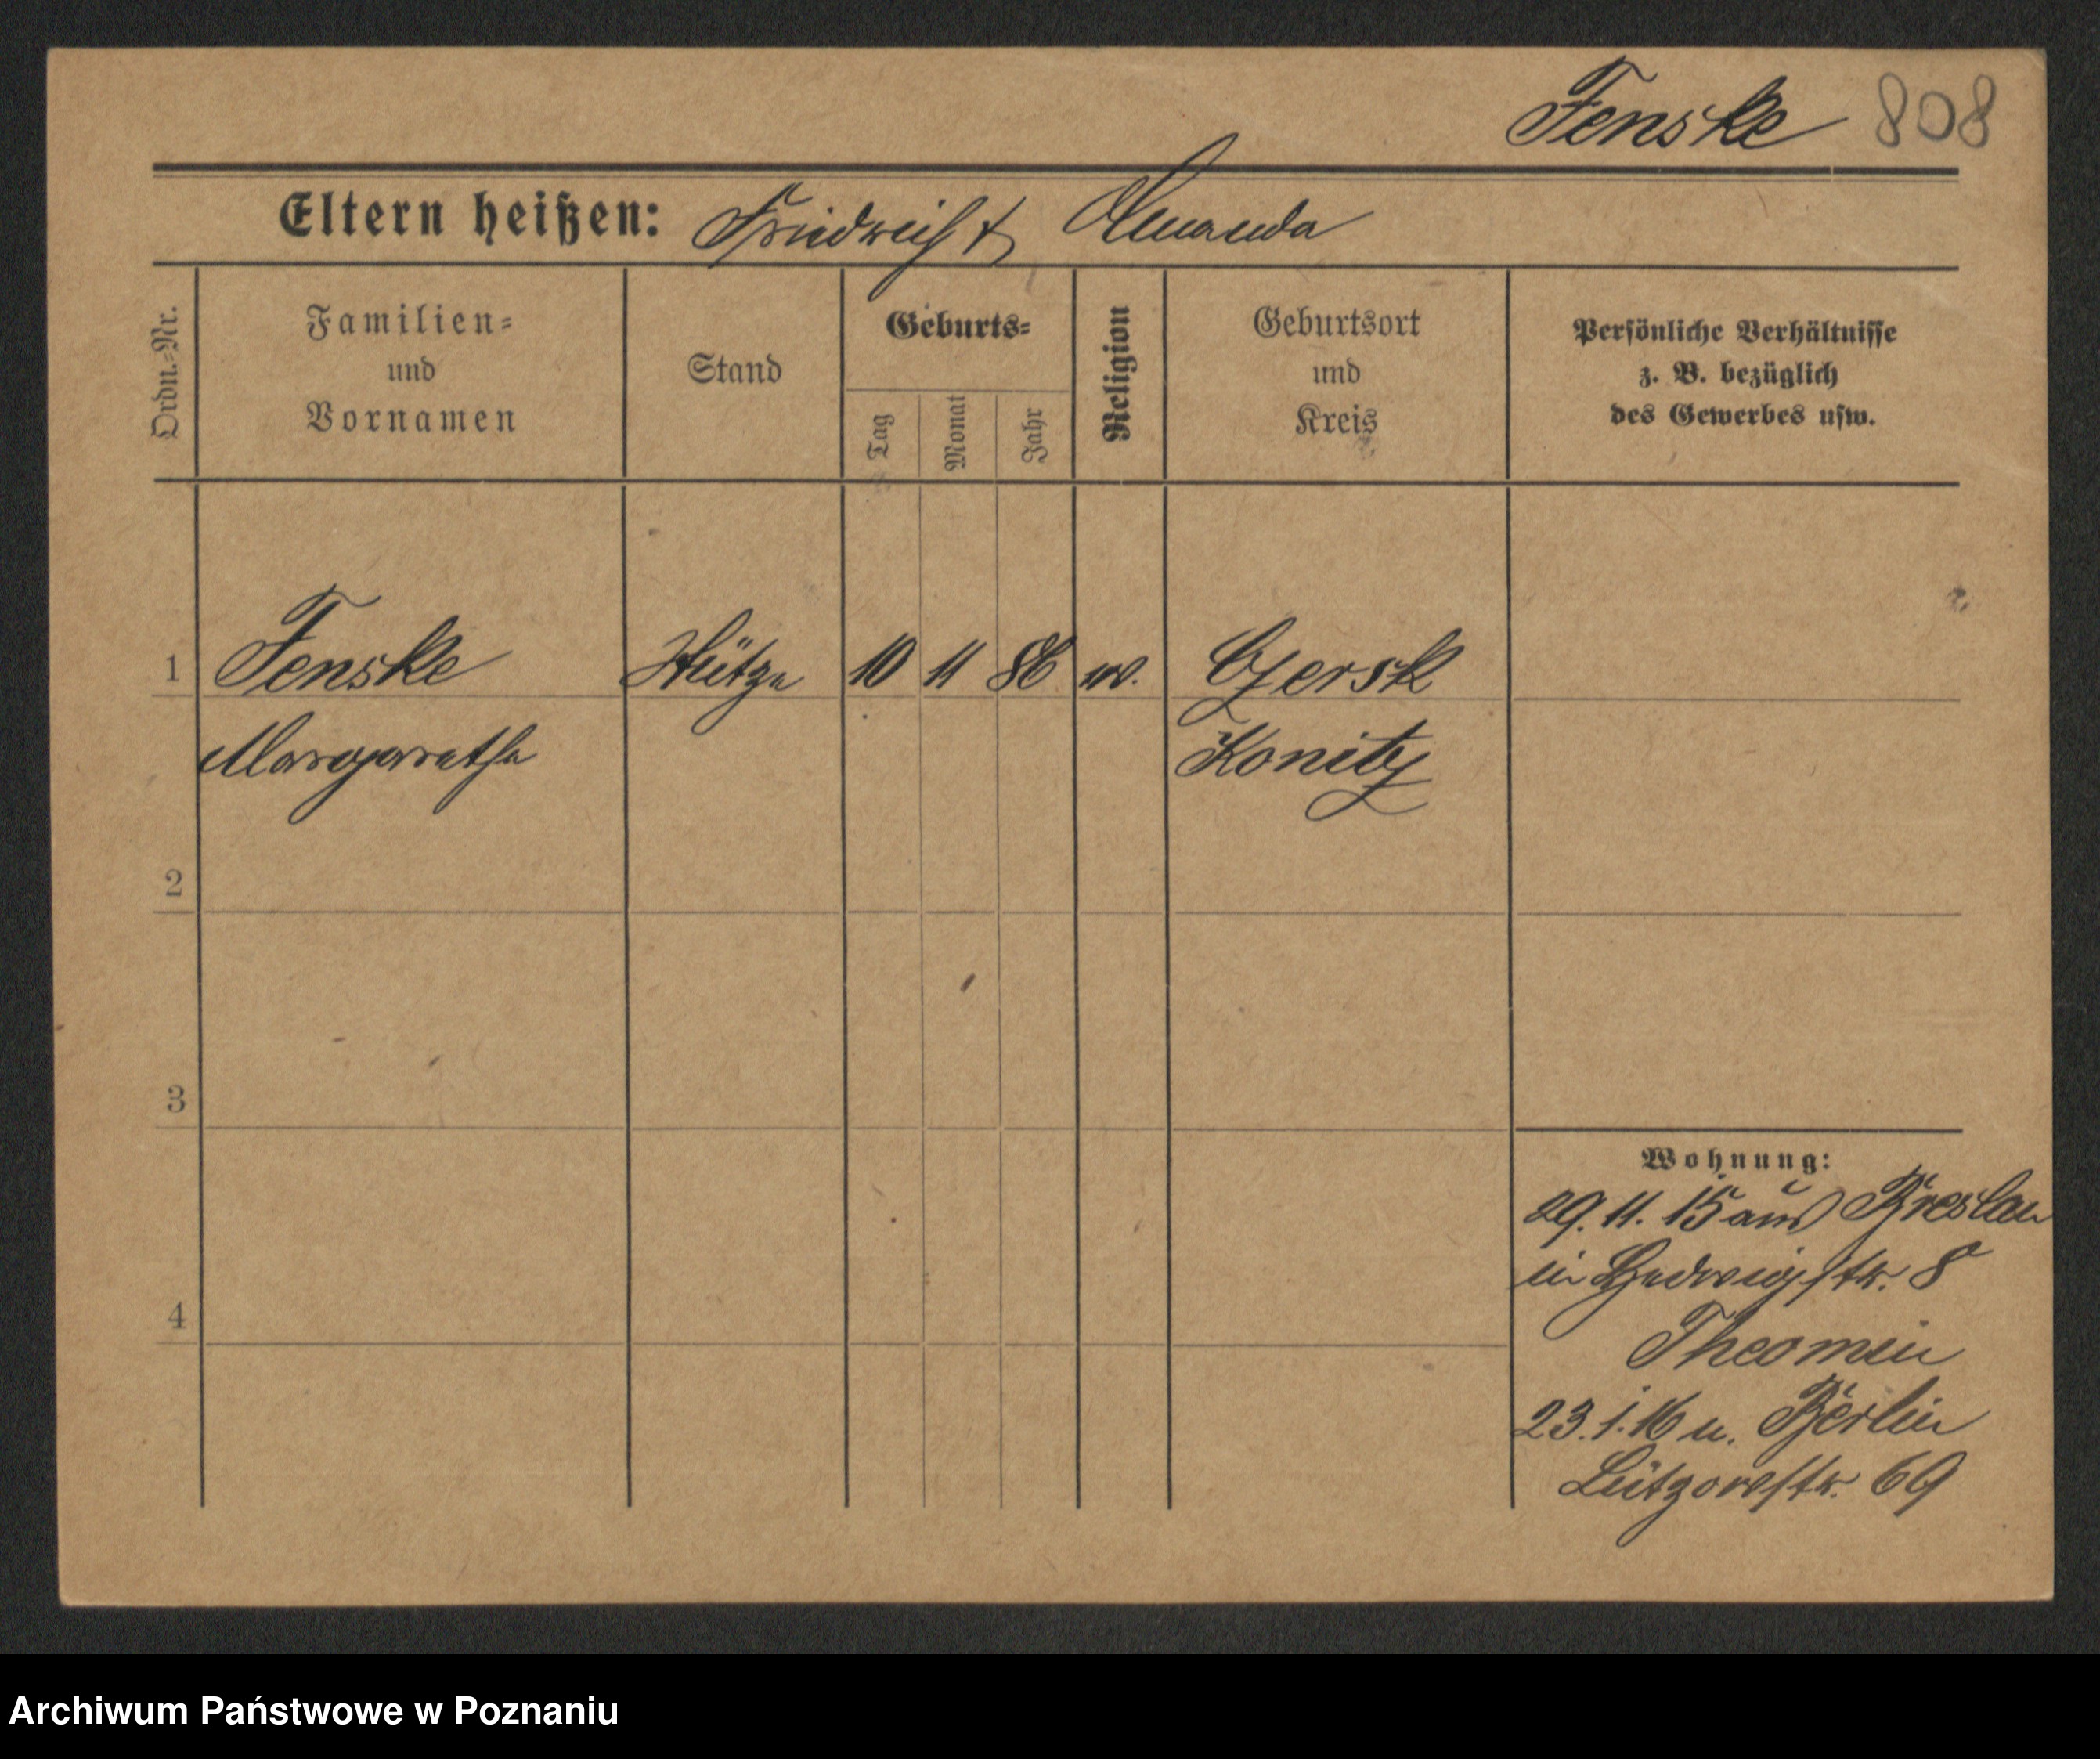 Fenske 808
Eltern heißen: Friedrich & Amanda
Ordn.=Nr.
Familien=
und
Vornamen
Stand
Geburts=
Tag
Monat
Jahr
Religion
Geburtsort
und
Kreis
Persönliche Verhältnisse
z. B. bezüglich
des Gewerbes usw.
1 Fenske Stütze 10 11 86 ev. Czersk
Margarethe Konitz
2
3
4
Wohnung:
29. 11. 15 aus Breslau
in Hedwigstr. 8
Theomin
23. 1. 16 n. Berlin
Lützowstr. 69
Archiwum Państwowe w Poznaniu